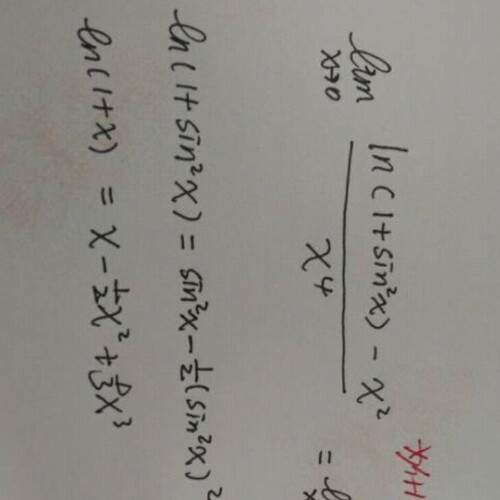 lim x→0 (ln(1+sin²x) - x²) / x⁴ =
ln(1+sin²x) = sin²x - ½(sin²x)²
ln(1+x) = x - ½x² + ⅓x³